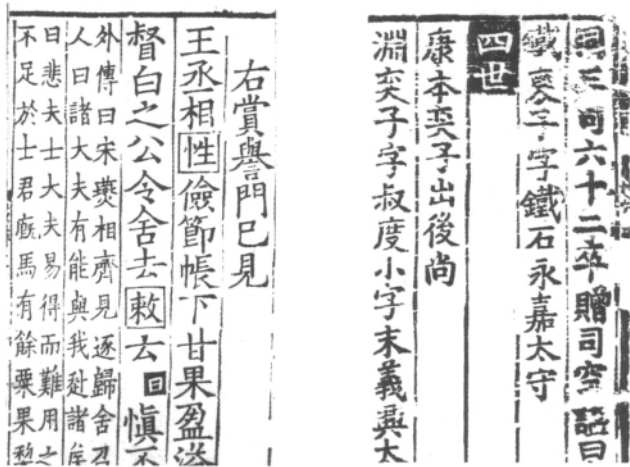 同三司六十二卒贈司空諡曰
子字鐵石永嘉太守
四世
康本奕子出後尚
淵奕子字叔度小字末義興太
右賞譽門已見
王丞相性儉節帳下甘果盈溢
督白之公令舍去敕云曰慎不
外傳曰宋燕相齊見逐歸舍召
人曰諸大夫有能與我赴諸侯
曰悲夫士大夫易得而難用之
不足於士君廐馬有餘粟果梨